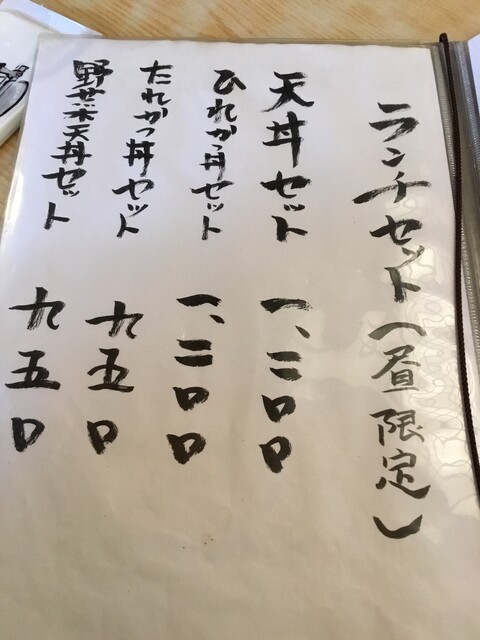 ランチセット(昼限定)
天丼セット 一、二〇〇
ひれかつ丼セット 一、二〇〇
たれかつ丼セット 九五〇
野菜天丼セット 九五〇